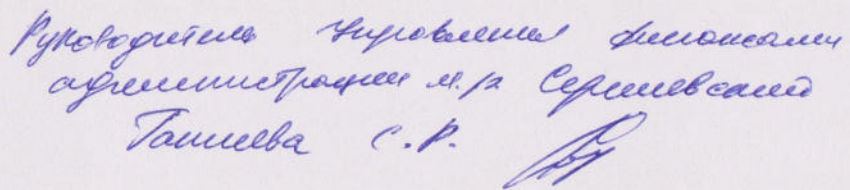 Руководитель Управления финансами
администрации м.р. Сергиевский
Ганиева С.Р.